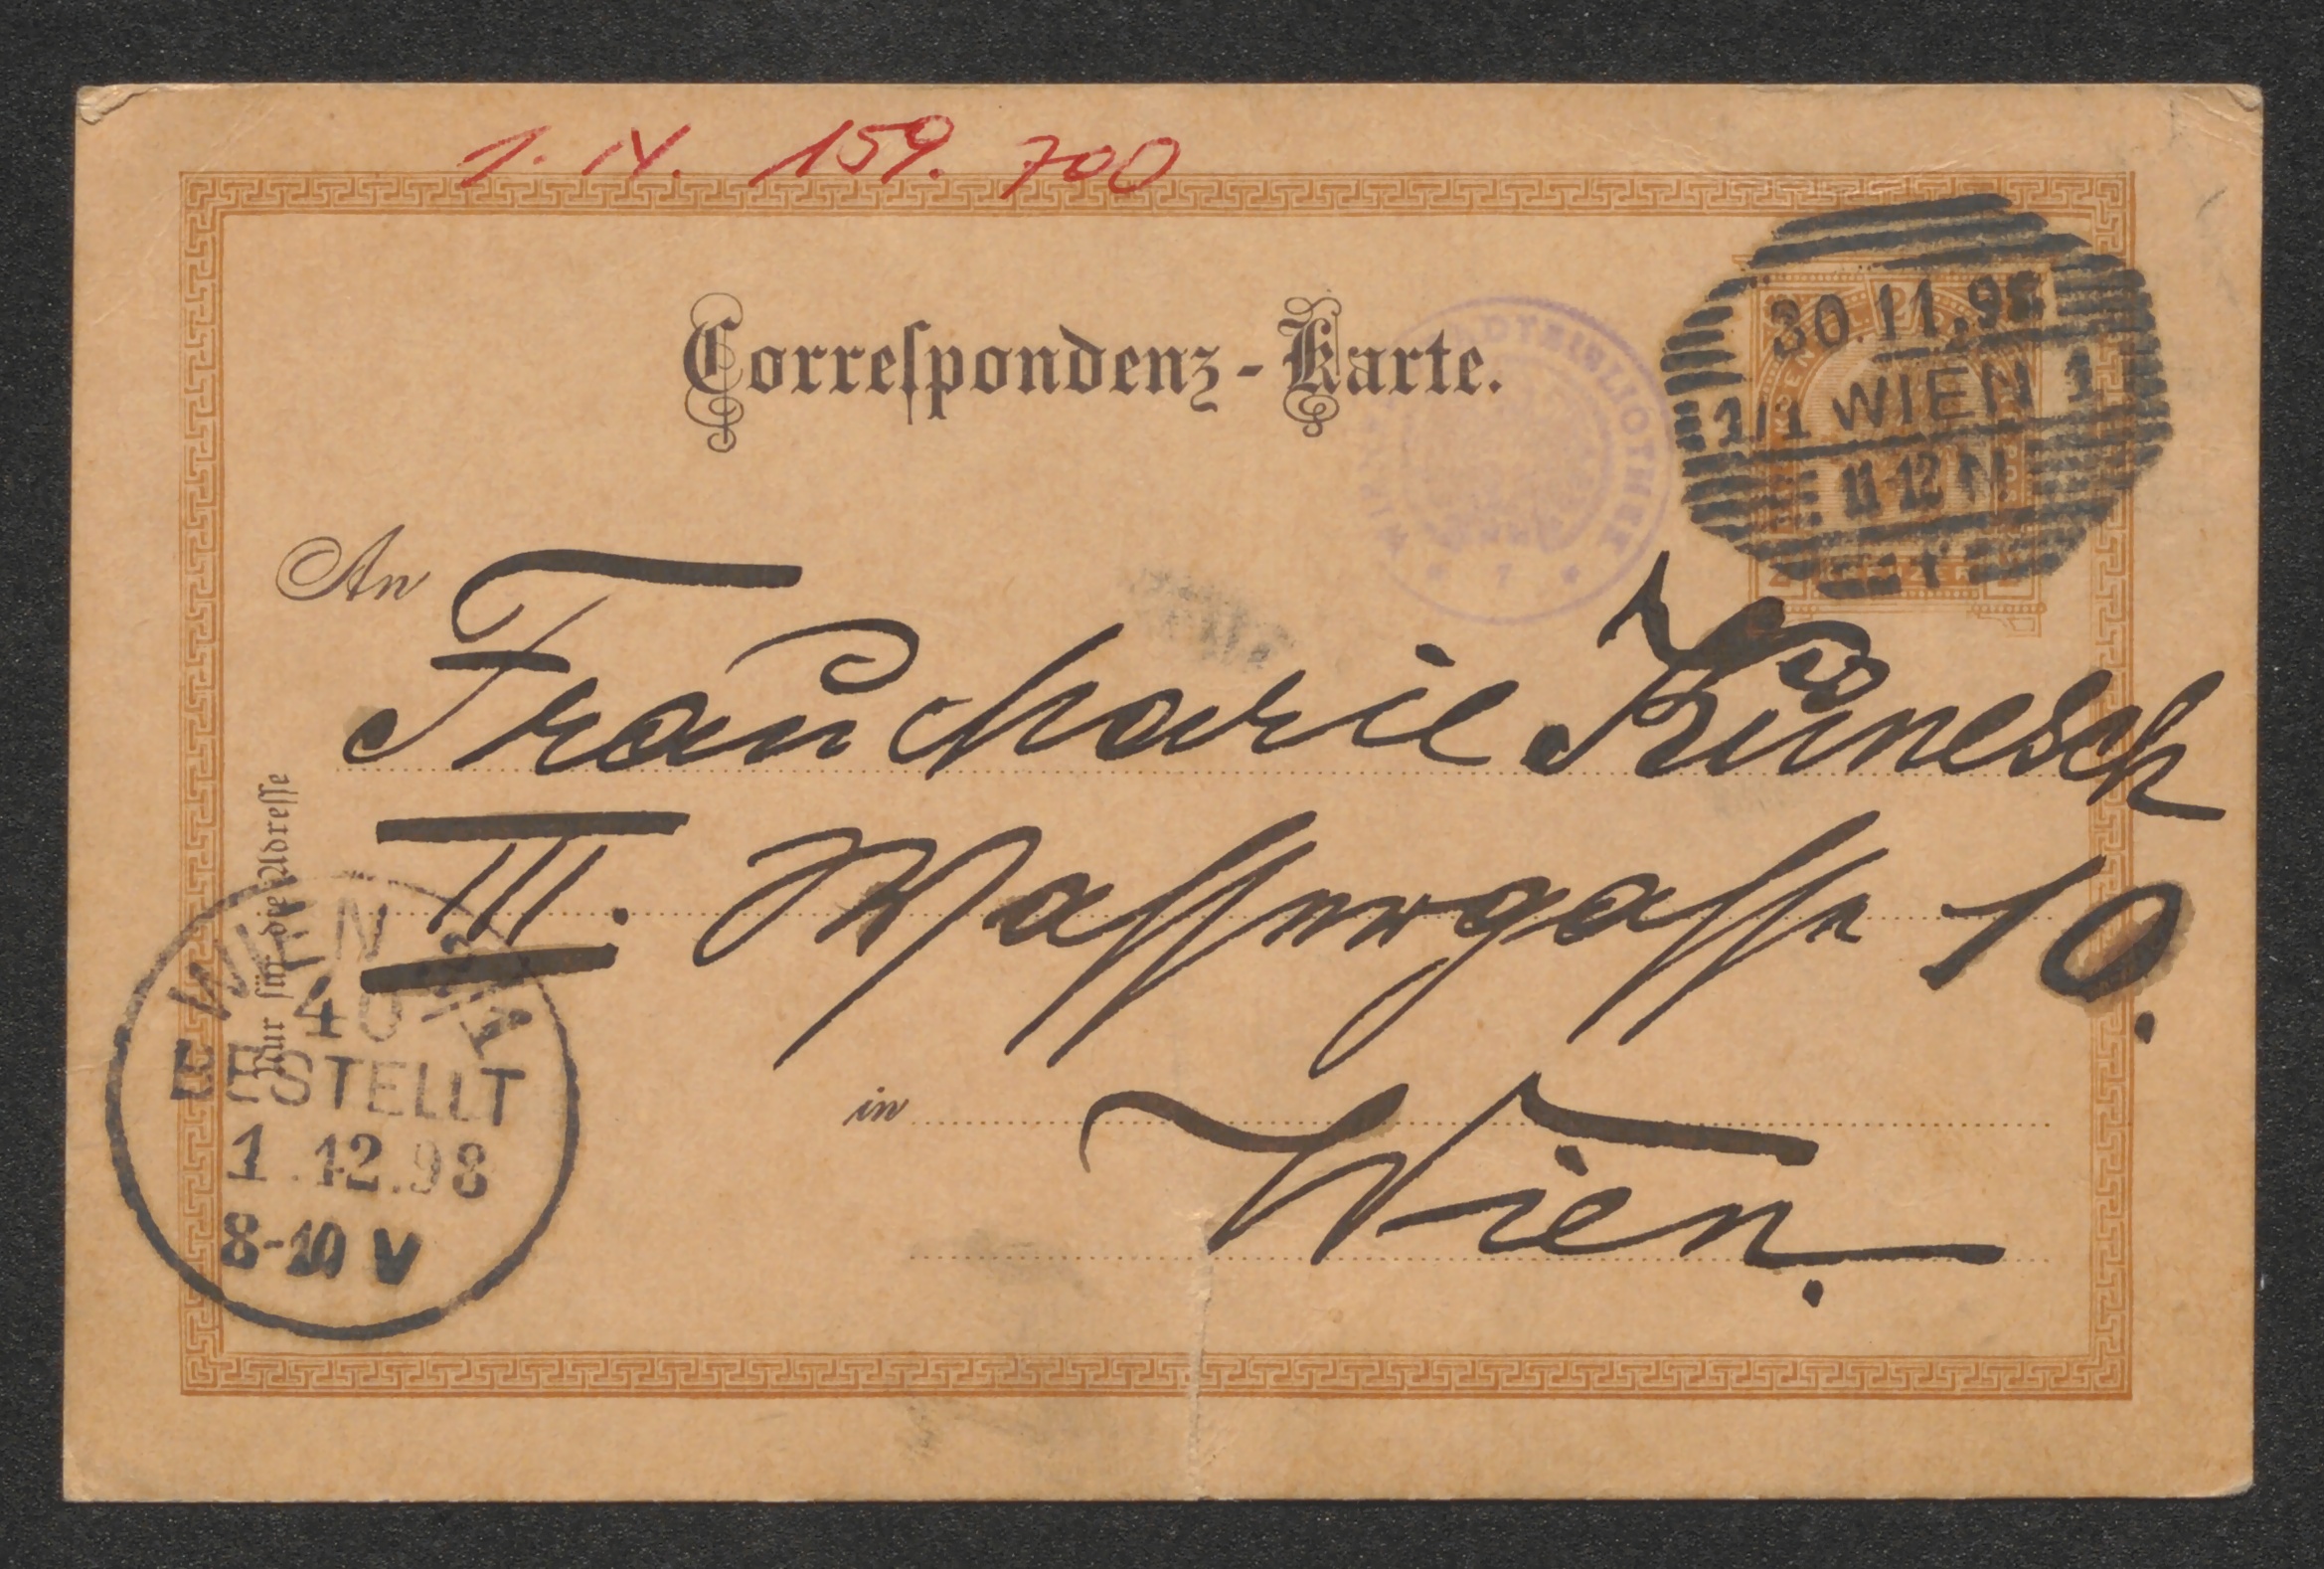 J. N. 159. 700
Correſpondenz-Karte.
30.11.98
1/1 WIEN 1
11-12 N
An
Frau Marie Kunesch
III. Waſſergaſſe 10.
in
Wien.
Nur für die Adreſſe
WIEN 3/1
40
BESTELLT
1.12.98
8-10 V
* 7 *